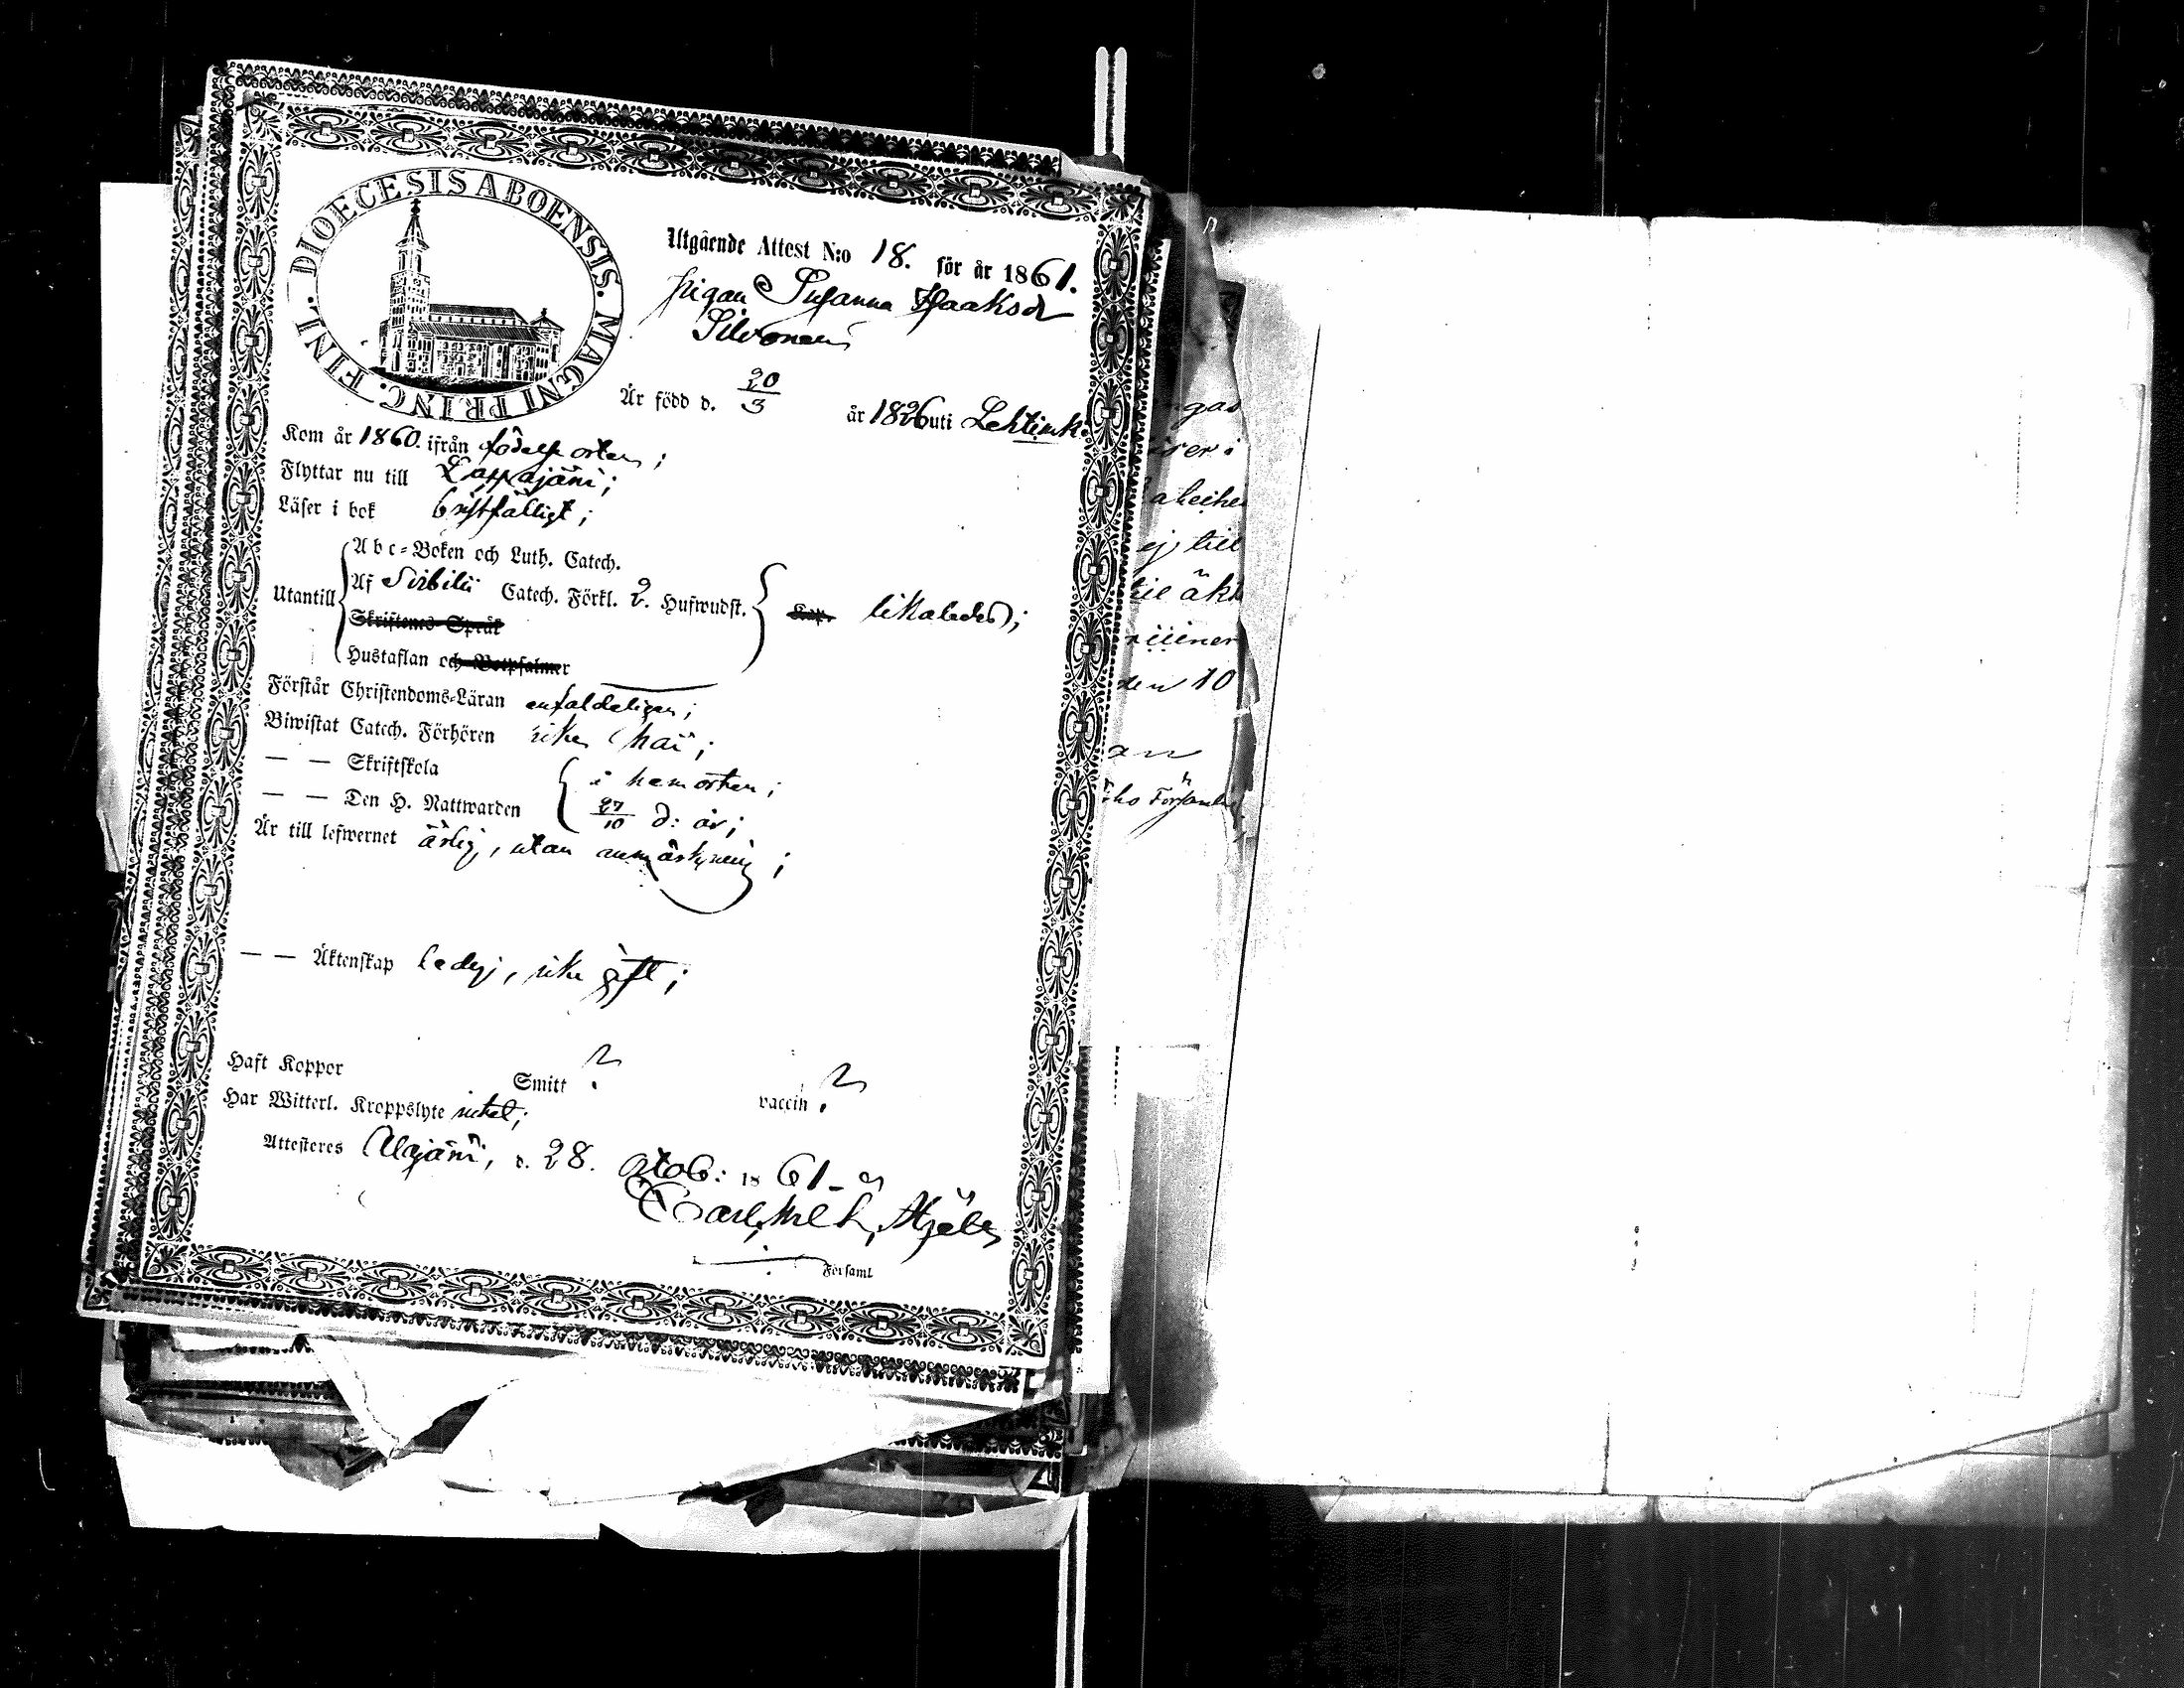 DIOECESIS ABOENSIS. MAGNI PRINC. FINL.
Utgående Attest N:o 18. för år 1861.
Pigan Susanna Isaaksdr
Silvonen
Är född d. 20/3 år 1826 uti Lehtimäki
Kom år 1860. ifrån födelse orten;
Flyttar nu till Lappajärvi;
Läser i bok bristfälligt;
Abc-Boken och Luth. Catech.
Utantill Af Svebilii Catech. Förkl. 2. Hufwudst. likaledes;
Skriftenes Språk
Hustaflan och Botpsalmer
Förstår Christendoms-Läran enfaldeligen;
Biwistat Catech. Förhören icke här;
— — Skriftskola i hemorten;
— — Den H. Nattwarden 27/10 d: år;
Är till lefwernet ärlig, utan anmärkning;
— — Äktenskap ledig, icke gift;
Haft Koppor Smitt ? vaccin ?
Har Witterl. Kroppslyte intet;
Attesteres Alajärvi, d. 28. Octob: 1861.
Carl
Församl
ej till
den 10